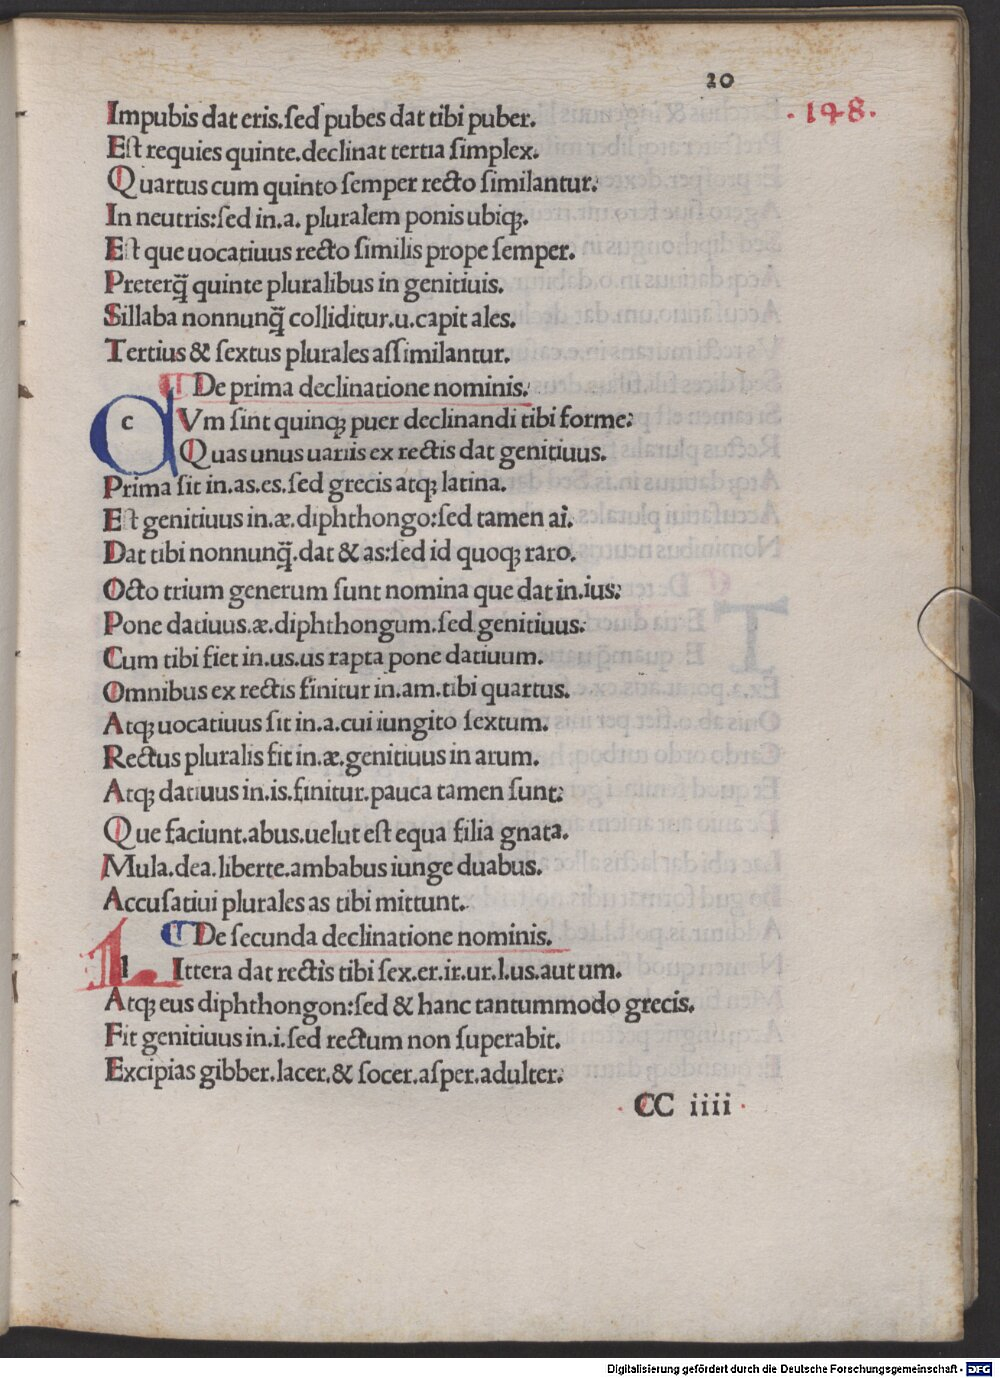 20
·148·
Impubis dat eris.ſed pubes dat tibi puber.
Eſt requies quinte.declinat tertia ſimplex.
Quartus cum quinto ſemper recto ſimilantur:
In neutris:ſed in.a. pluralem ponis ubiqꝫ.
Eſt que uocatiuus recto ſimilis prope ſemper.
Preterq̃ quinte pluralibus in genitiuis.
Sillaba nonnunq̃ colliditur.u.capit ales.
Tertius & ſextus plurales aſſimilantur.
¶ De prima declinatione nominis.
c Vm ſint quinqꝫ puer declinandi tibi forme:
Quas unus uariis ex rectis dat genitiuus.
Prima fit in.as.es.ſed grecis atqꝫ latina.
Eſt genitiuus in.æ.diphthongo:ſed tamen ai.
Dat tibi nonnunq̃.dat & as:ſed id quoqꝫ raro.
Octo trium generum ſunt nomina que dat in.ius:
Pone datiuus.æ.diphthongum.ſed genitiuus:
Cum tibi fiet in.us.us rapta pone datiuum.
Omnibus ex rectis finitur in.am.tibi quartus.
Atqꝫ uocatiuus fit in.a.cui iungito ſextum.
Rectus pluralis fit in.æ.genitiuus in arum.
Atqꝫ datiuus in.is.finitur.pauca tamen ſunt:
Que faciunt.abus.uelut eſt equa filia gnata.
Mula.dea.liberte.ambabus iunge duabus.
Accuſatiui plurales as tibi mittunt.
¶ De ſecunda declinatione nominis.
l Ittera dat rectis tibi ſex.er.ir.ur.l.us.aut um.
Atqꝫ eus diphthongon:ſed & hanc tantummodo grecis.
Fit genitiuus in.i.ſed rectum non ſuperabit.
Excipias gibber.lacer.& ſocer.aſper.adulter.
CC iiii
Digitalisierung gefördert durch die Deutsche Forschungsgemeinschaft - DFG